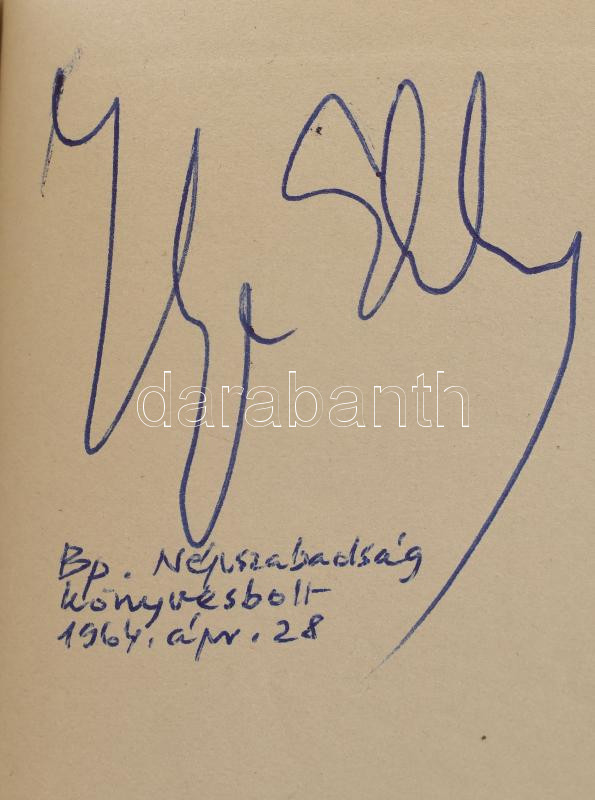 darabanth
Bp. Népszabadság
könyvesbolt
1964. ápr. 28